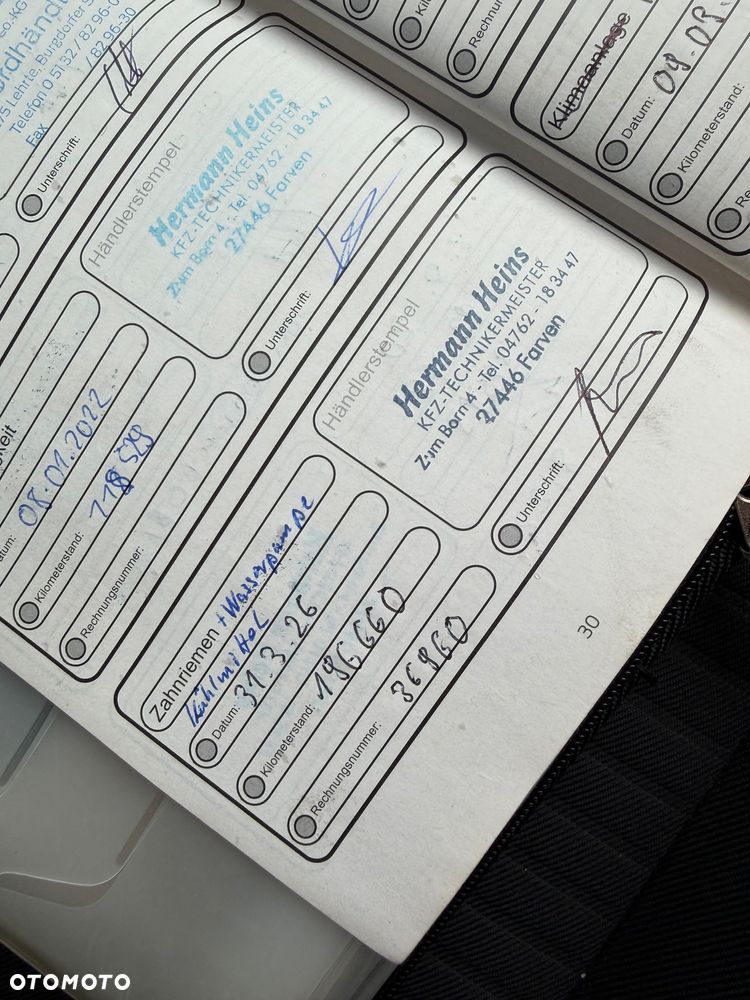 75 Lehrte, Burgdorfer S
Telefon 0 51 32 / 82 96-0
Fax / 82 96-30
Unterschrift:
Rechnun
Klimaanlage
Datum: 09.03.
Kilometerstand:
Re
Händlerstempel
Hermann Heins
KFZ-TECHNIKERMEISTER
Zum Born 4 - Tel. 04762 - 18 34 47
27446 Farven
Unterschrift:
keit
tum: 08.01.2022
Kilometerstand: 118 529
Rechnungsnummer:
Händlerstempel
Hermann Heins
KFZ-TECHNIKERMEISTER
Zum Born 4 - Tel. 04762 - 18 34 47
27446 Farven
Unterschrift:
Zahnriemen + Wasserpumpe
Kühlmittel
Datum: 31.3.26
Kilometerstand: 196660
Rechnungsnummer: 36960
30
OTOMOTO